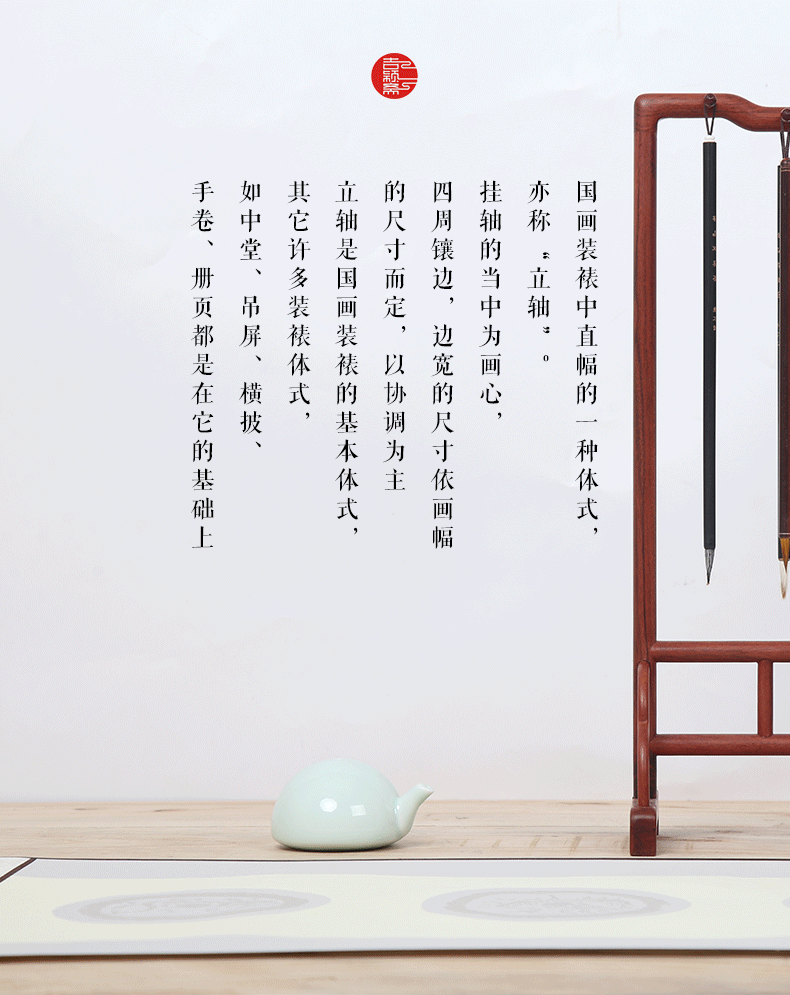 吉颖斋
国画装裱中直幅的一种体式，
亦称“立轴”。
挂轴的当中为画心，
四周镶边，边宽的尺寸依画幅
的尺寸而定，以协调为主
立轴是国画装裱的基本体式，
其它许多装裱体式，
如中堂、吊屏、横披、
手卷、册页都是在它的基础上